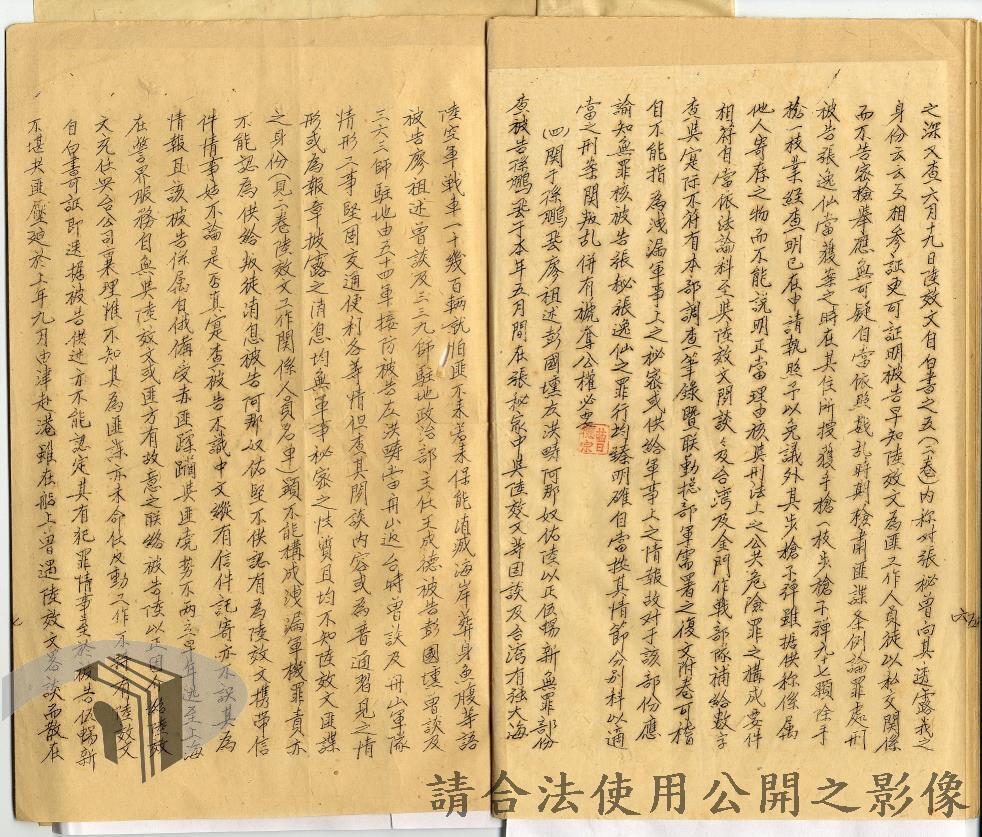 之深又查六月十九日陸效文自白書之五(一卷)內称對張秘曾向其透露我之
身份云云互相参証更可証明被告早知陸效文為匪工作人員徒以私交關係
而不告密檢舉應無可疑自當依照戡乱時期檢肅匪諜条例論罪處刑
被告張逸仙當獲案之時在其住所搜獲手槍一枝步槍子彈九十七顆除手
槍一枝業経查明已在申請執照予以免議外其步槍子彈雖據供称係属
他人寄存之物而不能説明正當理由核與刑法上之公共危險罪之構成要件
相符自當依法論科至與陸效文閒談々及台湾及金門作戰部隊補給数字
查與实际不符有本部調查筆錄暨联勤総部軍需署之復文附卷可稽
自不能指為洩漏軍事上之秘密或供給軍事上之情報故对于該部份應
諭知無罪核被告張秘張逸仙之罪行均臻明確自當按其情節分別科以適
當之刑業關叛乱併有褫奪公權必要
曾德宗
(四)関于孫鵬飛廖祖述彭國壎左洪疇阿那奴佑陸以正伍暢新無罪部份
查被告孫鵬飛于本年五月間在張秘家中與陸效文等因談及台湾有強大海
陸空軍战車一十幾百輛就怕匪不來若來保能消滅海岸葬身魚腹等語
被告廖祖述曾談及三三九師駐地政治部主任王成德被告彭國壎曾談及
三六三師駐地由五十四軍接防被告左洪疇當舟山返台時曾談及舟山軍隊
情形工事堅固交通便利各等情但查其閒談內容或為普通習見之情
形或為報章披露之消息均無軍事秘密之性質且均不知陸效文匪諜
之身份(見一卷陸效文工作関係人員名单)顕不能構成洩漏軍機罪責亦
不能認為供給叛徒消息被告阿那奴佑堅不供認有為陸效文携帶信
件情事姑不論是否真実查被告不識中文縱有信件託寄亦不誤其為
情報且該被告係属白俄備受赤匪蹂躪其匪党势不兩立早年逃至上海
在警界服務自無與陸效文或匪方有故意之联络被告陸以正因介紹陸效
文充任兴台公司襄理惟不知其為匪諜亦未命任反動工作亦有陸效文
自白書可証即迭據被告供述亦不能認定其有犯罪情事至於被告伍暢新
不堪共匪壓廹於上年九月由津赴港雖在船上曾遇陸效文若談而散在
請合法使用公開之影像